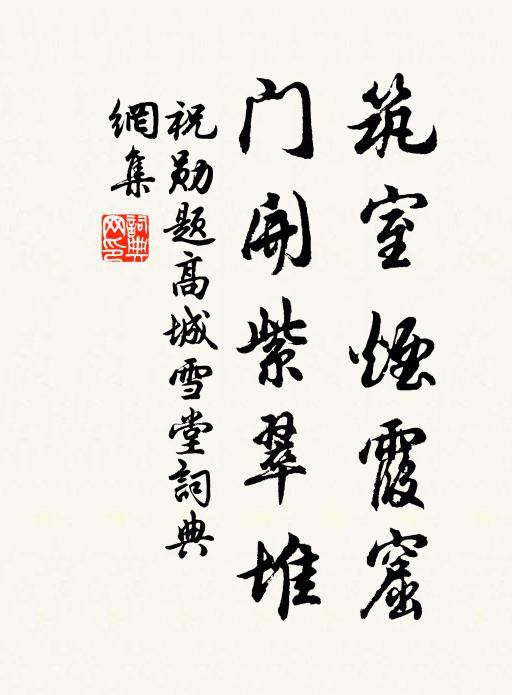 筑室烟霞窟
门開紫翠堆
祝勋题高城雪堂詞典
網集
詞典
网印